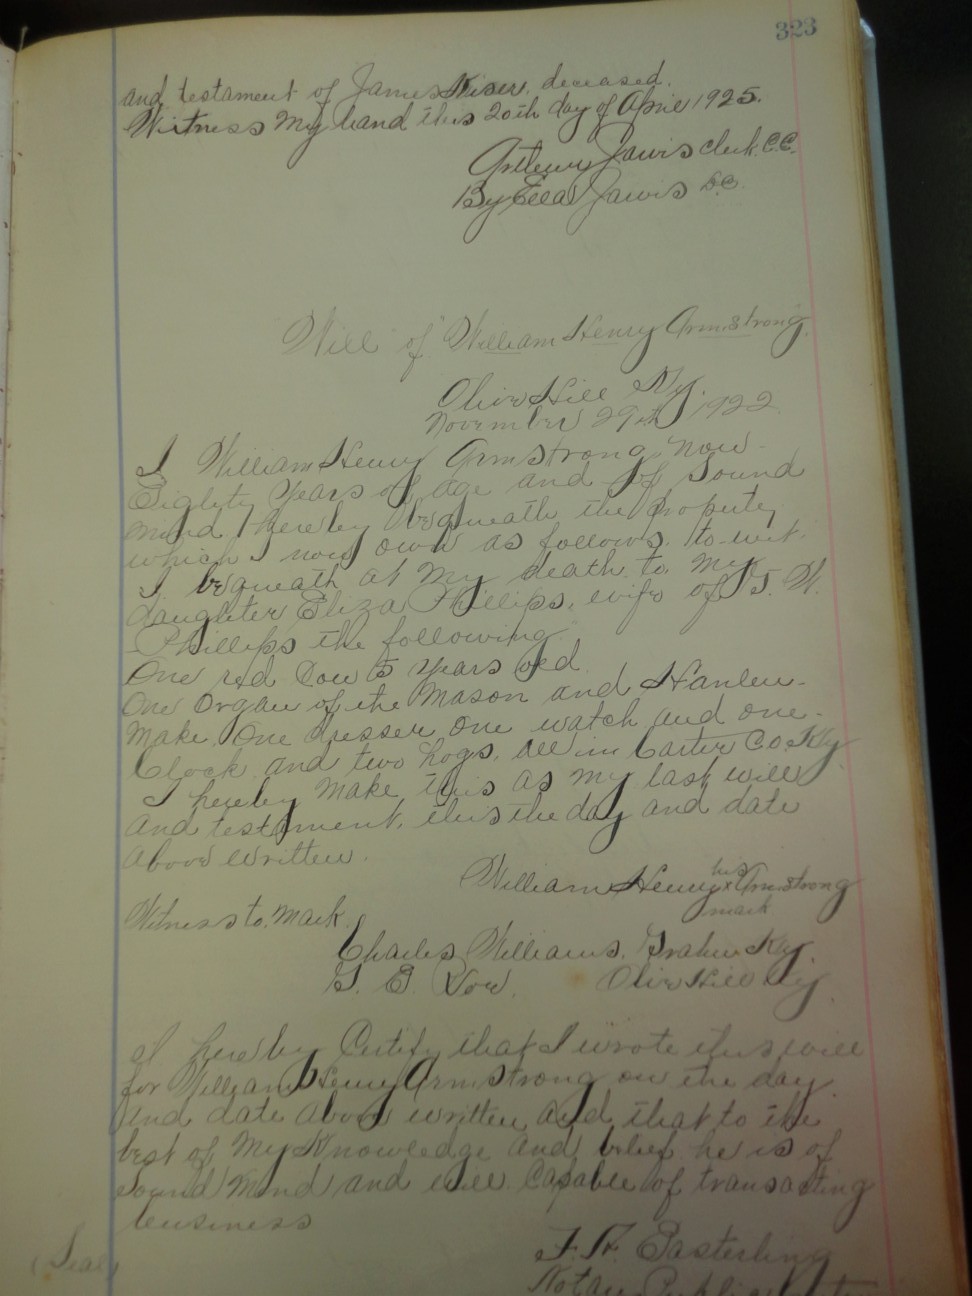 323
and testament of James Kiser, deceased.
Witness My hand this 20th day of April 1925.
Jarvis Clerk. C.C.
By Ella Jarvis D.C.
Will of William Henry Armstrong.
Olive Hill Ky.
November 29th 1922
I William Henry Armstrong now
Eighty years of age and of sound
mind hereby bequeath the property
which I now own as follows, to-wit.
I bequeath at my death to my
daughter Eliza Phillips, wife of W.
Phillips the following
One red Cow 5 years old
One organ of the Mason and Hamlin
make, One dresser one watch and one
Clock and two hogs, all in Carter Co. Ky
I hereby make this as my last will
and testament, this the day and date
above written.
William Henry his x Armstrong
mark
Witness to Mark.
Charles Williams, Grahn Ky.
G. E. Olive Hill Ky
I hereby Certify that I wrote this will
for William Henry Armstrong on the day
and date above written and that to the
best of my Knowledge and belief he is of
sound mind and well capable of transacting
business
F. A. Easterling
(Seal)
Notary Public